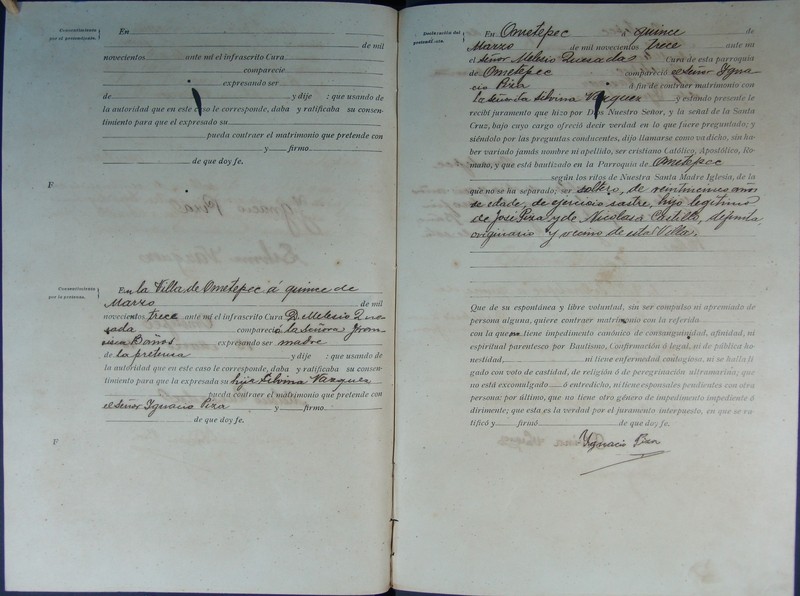 Consentimiento
por el pretendiente.
En
de mil
novecientos ante mí el infrascrito Cura
compareció
expresando ser
de y dije : que usando de
la autoridad que en este caso le corresponde, daba y ratificaba su consen-
timiento para que el expresado su
pueda contraer el matrimonio que pretende con
y firmo
de que doy fe.
F
Consentimiento
por la pretensa.
En la Villa de Ometepec á quince de
Marzo de mil
novecientos trece ante mí el infrascrito Cura D. Melesio Que
sada compareció la Señora Fran
cisca Baños expresando ser madre
de la pretensa y dije : que usando de
la autoridad que en este caso le corresponde, daba y ratificaba su consen-
timiento para que la expresada su hija Silvina Vazquez
pueda contraer el matrimonio que pretende con
el Señor Ignacio Piza y firmo.
de que doy fe.
F
Declaración del
pretendiente.
En Ometepec á quince de
Marzo de mil novecientos trece ante mí
el Señor Melesio Quesada Cura de esta parroquia
de Ometepec compareció el Señor Ygna
cio Piza á fin de contraer matrimonio con
la Señorita Silvina Vazquez y estando presente le
recibí juramento que hizo por Dios Nuestro Señor, y la señal de la Santa
Cruz, bajo cuyo cargo ofreció decir verdad en lo que fuere preguntado; y
siéndolo por las preguntas conducentes, dijo llamarse como va dicho, sin ha-
ber variado jamás nombre ni apellido, ser cristiano Católico, Apostólico, Ro-
mano, y que está bautizado en la Parroquia de Ometepec
según los ritos de Nuestra Santa Madre Iglesia, de la
que no se ha separado; ser soltero, de veinticinco años
de edade, de ejercicio sastre, hijo legítimo
de José Piza y de Nicolasa Castillo, defunta,
originario y vecino de esta Villa.
Que de su espontánea y libre voluntad, sin ser compulso ni apremiado de
persona alguna, quiere contraer matrimonio con la referida
con la que no tiene impedimento canónico de consanguinidad, afinidad, ni
espiritual parentesco por Bautismo, Confirmación ó legal, ni de pública ho-
nestidad, ni tiene enfermedad contagiosa, ni se halla li
gado con voto de castidad, de religión ó de peregrinación ultramarina; que
no está excomulgado ó entredicho, ni tiene esponsales pendientes con otra
persona: por último, que no tiene otro género de impedimento impediente ó
dirimente; que esta es la verdad por el juramento interpuesto, en que se ra-
tificó y firmó de que doy fe.
Ygnacio Piza